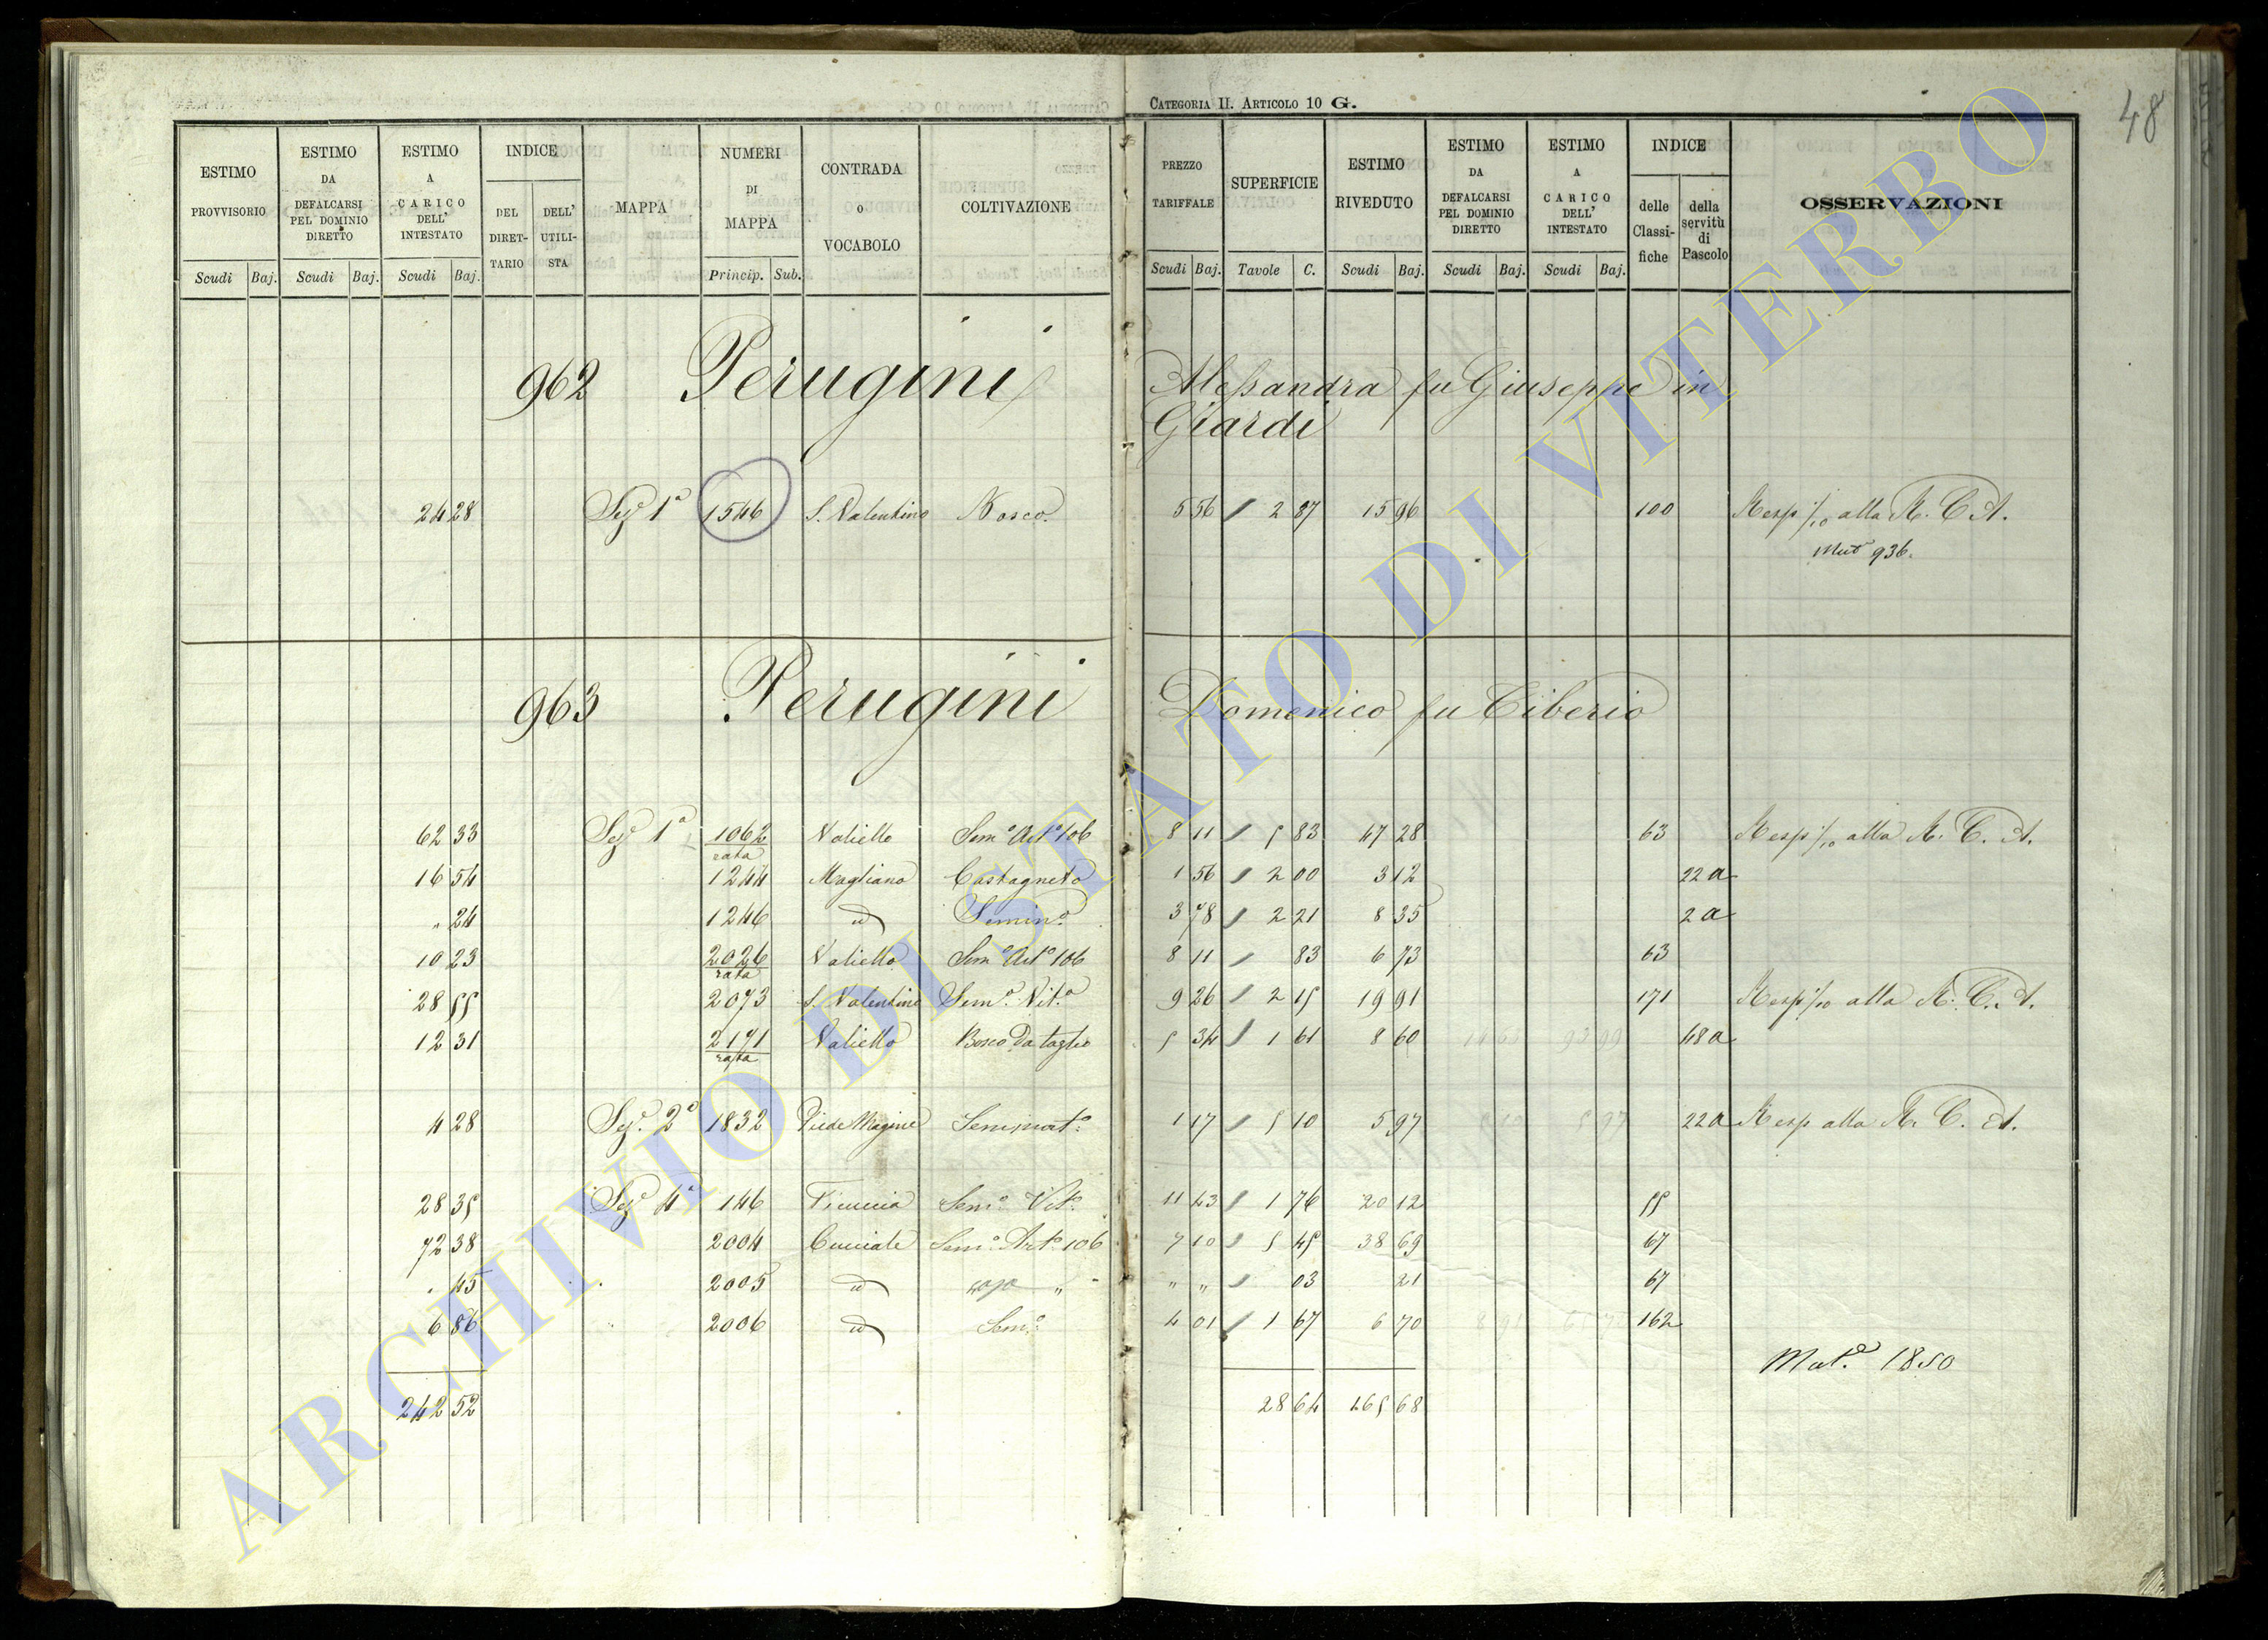 CATEGORIA II. ARTICOLO 10 G.
48
ESTIMO PROVVISORIO
ESTIMO DA DEFALCARSI PEL DOMINIO DIRETTO
ESTIMO A CARICO DELL' INTESTATO
INDICE
DEL DIRETTARIO
DELL' UTILISTA
MAPPA
NUMERI DI MAPPA
CONTRADA o VOCABOLO
COLTIVAZIONE
PREZZO TARIFFALE
SUPERFICIE
ESTIMO RIVEDUTO
ESTIMO DA DEFALCARSI PEL DOMINIO DIRETTO
ESTIMO A CARICO DELL' INTESTATO
INDICE
delle Classifiche
della servitù di Pascolo
OSSERVAZIONI
Scudi Baj. Scudi Baj. Scudi Baj. Princip. Sub. Scudi Baj. Tavole C. Scudi Baj. Scudi Baj. Scudi Baj.
962 Perugini Alessandra fu Giuseppe in
Giardi
24 28 Sez.e 1a 1546 S. Valentino Bosco. 5 56 2 87 15 96 100 Resp 1/10 alla R. C. A.
Mut 936.
963 Perugini Domenico fu Tiberio
62 33 Sez.e 1a 1062 rata Valiello Sem.o Art.o 106 8 11 5 83 47 28 63 Resp 1/10 alla R. C. A.
16 54 1244 Magliano Castagneto 1 56 2 00 3 12 22 a
" 24 1246 id Semin.o 3 78 2 21 8 35 2 a
10 23 2026 rata Valiello Sem.o Art.o 106 8 11 83 6 73 63
28 55 2073 S. Valentino Sem.o Vit.o 9 26 2 15 19 91 171 Resp 1/10 alla R. C. A.
12 31 2171 rata Valiello Bosco da taglio 5 34 1 61 8 60 48 a
4 28 Sez.e 2a 1832 Seminat.o 1 17 5 10 5 97 22 a Resp alla R. C. A.
28 35 Sez.e 4a 146 Ficuccia Sem.o Vit.o 11 43 1 76 20 12 55
72 38 2004 Cucciale Sem.o Art.o 106 7 10 5 45 38 69 67
" 45 2005 id " " " 03 21 67
6 86 2006 id Sem.o 4 01 1 67 6 70 162
Mut.e 1850
242 52 28 64 165 68
ARCHIVIO DI STATO DI VITERBO